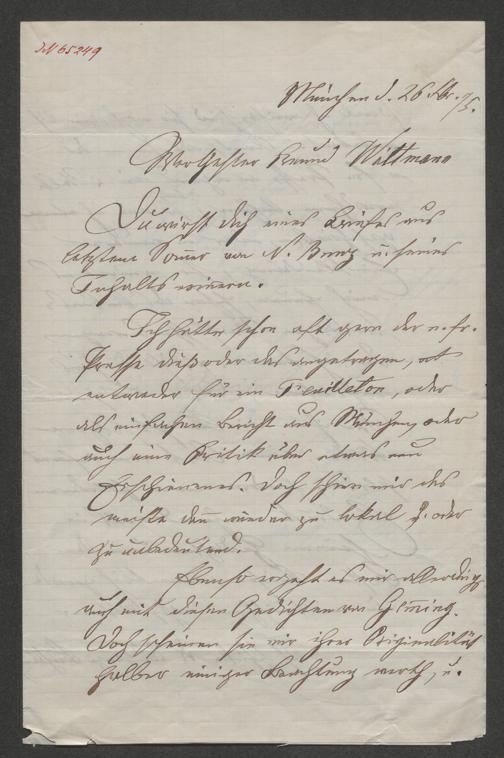 IN 65249
München d. 26 /75.
Werthester Freund Wittmann
Du wirst dich eines Briefes aus
letztem Somer von N. u. seines
Inhalts erinnern.
Ich hätte schon oft gern der n. fr.
Presse dieß oder das angetragen,
entweder für ein Feuilleton, oder
als einfachen Bericht aus München, oder
auch eine Kritik über etwas neu
Erschienenes. Doch schien mir das
meiste den wieder zu lokal oder
zu unbedeutend.
Ebenso ergeht es mir allerdings
auch mit diesen Gedichten von Geming.
Doch scheinen sie mir ihrer Originalität
halber einiger Beachtung werth, u.